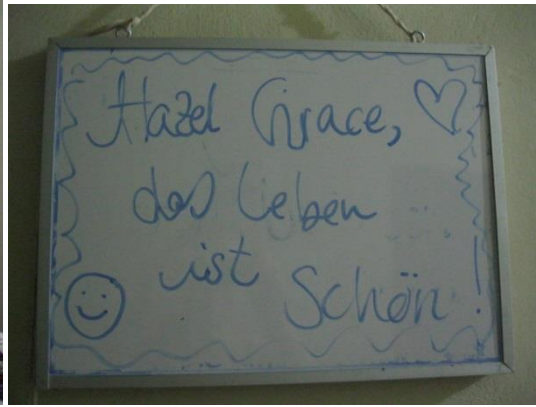 Hazel Grace,
das Leben
ist
Schön!